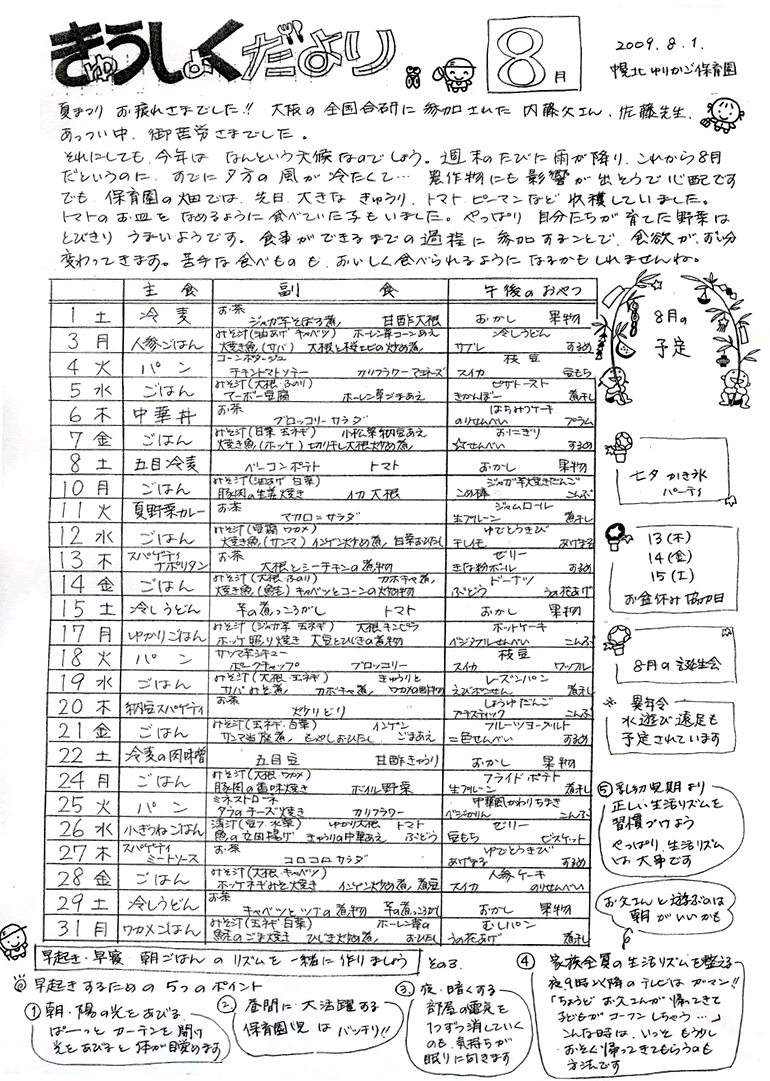 きゅうしょくだより
8月
2009.8.1.
幌北ゆりかご保育園
夏まつり お疲れさまでした!! 大阪の全国合研に参加された 内藤父さん、佐藤先生、
あっつい中、御苦労さまでした。
それにしても、今年は なんという天候なのでしょう。週末のたびに雨が降り、これから8月
だというのに、すでに夕方の風が冷たくて… 農作物にも影響が出そうで心配です
でも、保育園の畑では、先日、大きな きゅうり、トマト、ピーマンなど 収穫していました。
トマトのお皿を なめるように食べていた子もいました。やっぱり 自分たちが 育てた野菜は
とびきり うまいようです。食事ができるまでの過程に参加することで、食欲が、ずい分
変わってきます。苦手な食べものも、おいしく食べられるように なるかもしれませんね。
主食 副食 午後のおやつ
1 土 冷麦 お茶 ジャガ芋そぼろ煮 甘酢大根 おかし 果物
3 月 人参ごはん みそ汁(油あげ キャベツ) ホーレン草コーンあえ 焼き魚(サバ) 大根と桜エビの炒め煮 冷しうどん サブレ するめ
4 火 パン コーンポタージュ チキントマトソテー カリフラワーマヨネーズ 枝豆 スイカ 豆もち
5 水 ごはん みそ汁(大根・ふのり) マーボー豆腐 ホーレン草ごまあえ ピザトースト きかんぼー 煮干し
6 木 中華丼 お茶 ブロッコリーサラダ はちみつケーキ のりせんべい プラム
7 金 ごはん みそ汁(白菜 玉ネギ) 小松菜納豆あえ 焼き魚(ホッケ) 切り干し大根炒め煮 おにぎり ☆せんべい するめ
8 土 五目冷麦 ベーコンポテト トマト おかし 果物
10 月 ごはん みそ汁(油あげ 白菜) 豚肉の生姜焼き イカ大根 ジャガ芋焼きだんご こめ棒 こんぶ
11 火 夏野菜カレー お茶 マカロニサラダ ジャムロール 生プルーン 煮干し
12 水 ごはん みそ汁(豆腐 ワカメ) 焼き魚(サンマ) インゲン炒め煮 白菜おひたし ゆでとうきび 干しイモ あげ芋
13 木 スパゲティナポリタン お茶 大根とシーチキンの煮物 ゼリー きな粉ボール するめ
14 金 ごはん みそ汁(大根・ふのり) カボチャ煮 焼き魚(鮭) キャベツとコーンの炒め物 ドーナツ ぶどう うの花あげ
15 土 冷しうどん 芋の煮っころがし トマト おかし 果物
17 月 ゆかりごはん みそ汁(ジャガ芋 玉ネギ) 大根キンピラ ホッケ照り焼き 大豆とひじきの煮物 ホットケーキ ベジタブルせんべい こんぶ
18 火 パン サツマ芋シチュー ポークチャップ ブロッコリー 枝豆 スイカ ワッフル
19 水 ごはん みそ汁(大根・玉ネギ) きゅうりと サバみそ煮 カボチャ煮 ワカメの酢物 レーズンパン えびポンせん 煮干し
20 木 納豆スパゲティ お茶 炒りどり しょうゆだんご プチスティック こんぶ
21 金 ごはん みそ汁(玉ネギ・白菜) インゲン サンマ当座煮 もやしおひたし ごまあえ フルーツヨーグルト 二色せんべい するめ
22 土 冷麦の肉味噌 五目豆 甘酢きゅうり おかし 果物
24 月 ごはん みそ汁(大根・ワカメ) 豚肉の香味焼き ボイル野菜 フライドポテト 生プルーン 煮干し
25 火 パン ミネストローネ タラのチーズ焼き カリフラワー 中華風かわりちまき ベジめりん こんぶ
26 水 小ぎつねごはん 清汁(豆フ 水菜) ゆかり大根 トマト 魚の立田揚げ きゅうりの中華あえ ぶどう ゼリー 豆もち ビスケット
27 木 スパゲティミートソース お茶 コロコロサラダ ゆでとうきび あげ芋 するめ
28 金 ごはん みそ汁(大根・キャベツ) ホッケネギみそ焼き インゲン炒め煮 煮豆 人参ケーキ スイカ のりせんべい
29 土 冷しうどん お茶 キャベツとツナの煮物 芋の煮っころがし おかし 果物
31 月 ワカメごはん みそ汁(玉ネギ 白菜) ホーレン草の 鮭のごま焼き ひじき炒め煮 おひたし むしパン うの花あげ 煮干し
8月の
予定
七夕かき氷
パーティ
13(木)
14(金)
15(土)
お盆休み協力日
8月の誕生会
※ 異年令
水遊び遠足も
予定されています
⑤ 乳幼児期より
正しい生活リズムを
習慣づけよう
やっぱり、生活リズム
は大事です
お父さんと遊ぶのは
朝がいいかも
早起き・早寝 朝ごはんのリズムを一緒に作りましょう その3.
◎ 早起きするための5つのポイント
① 朝・陽の光をあびる
ぱーっと カーテンを開け
光をあびると体が目覚めます
② 昼間に大活躍する
保育園児は バッチリ!!
③ 夜・暗くする
部屋の電気を
1つずつ消していく
のも、気持ちが
眠りに向きます
④ 家族全員の生活リズムを整える
夜9時以降のテレビはガマン!!
「ちょうどお父さんが帰ってきて
子どもがコーフンしちゃう…」
こんな時は、いっそ もう少し
おそく帰ってきてもらうのも
方法です